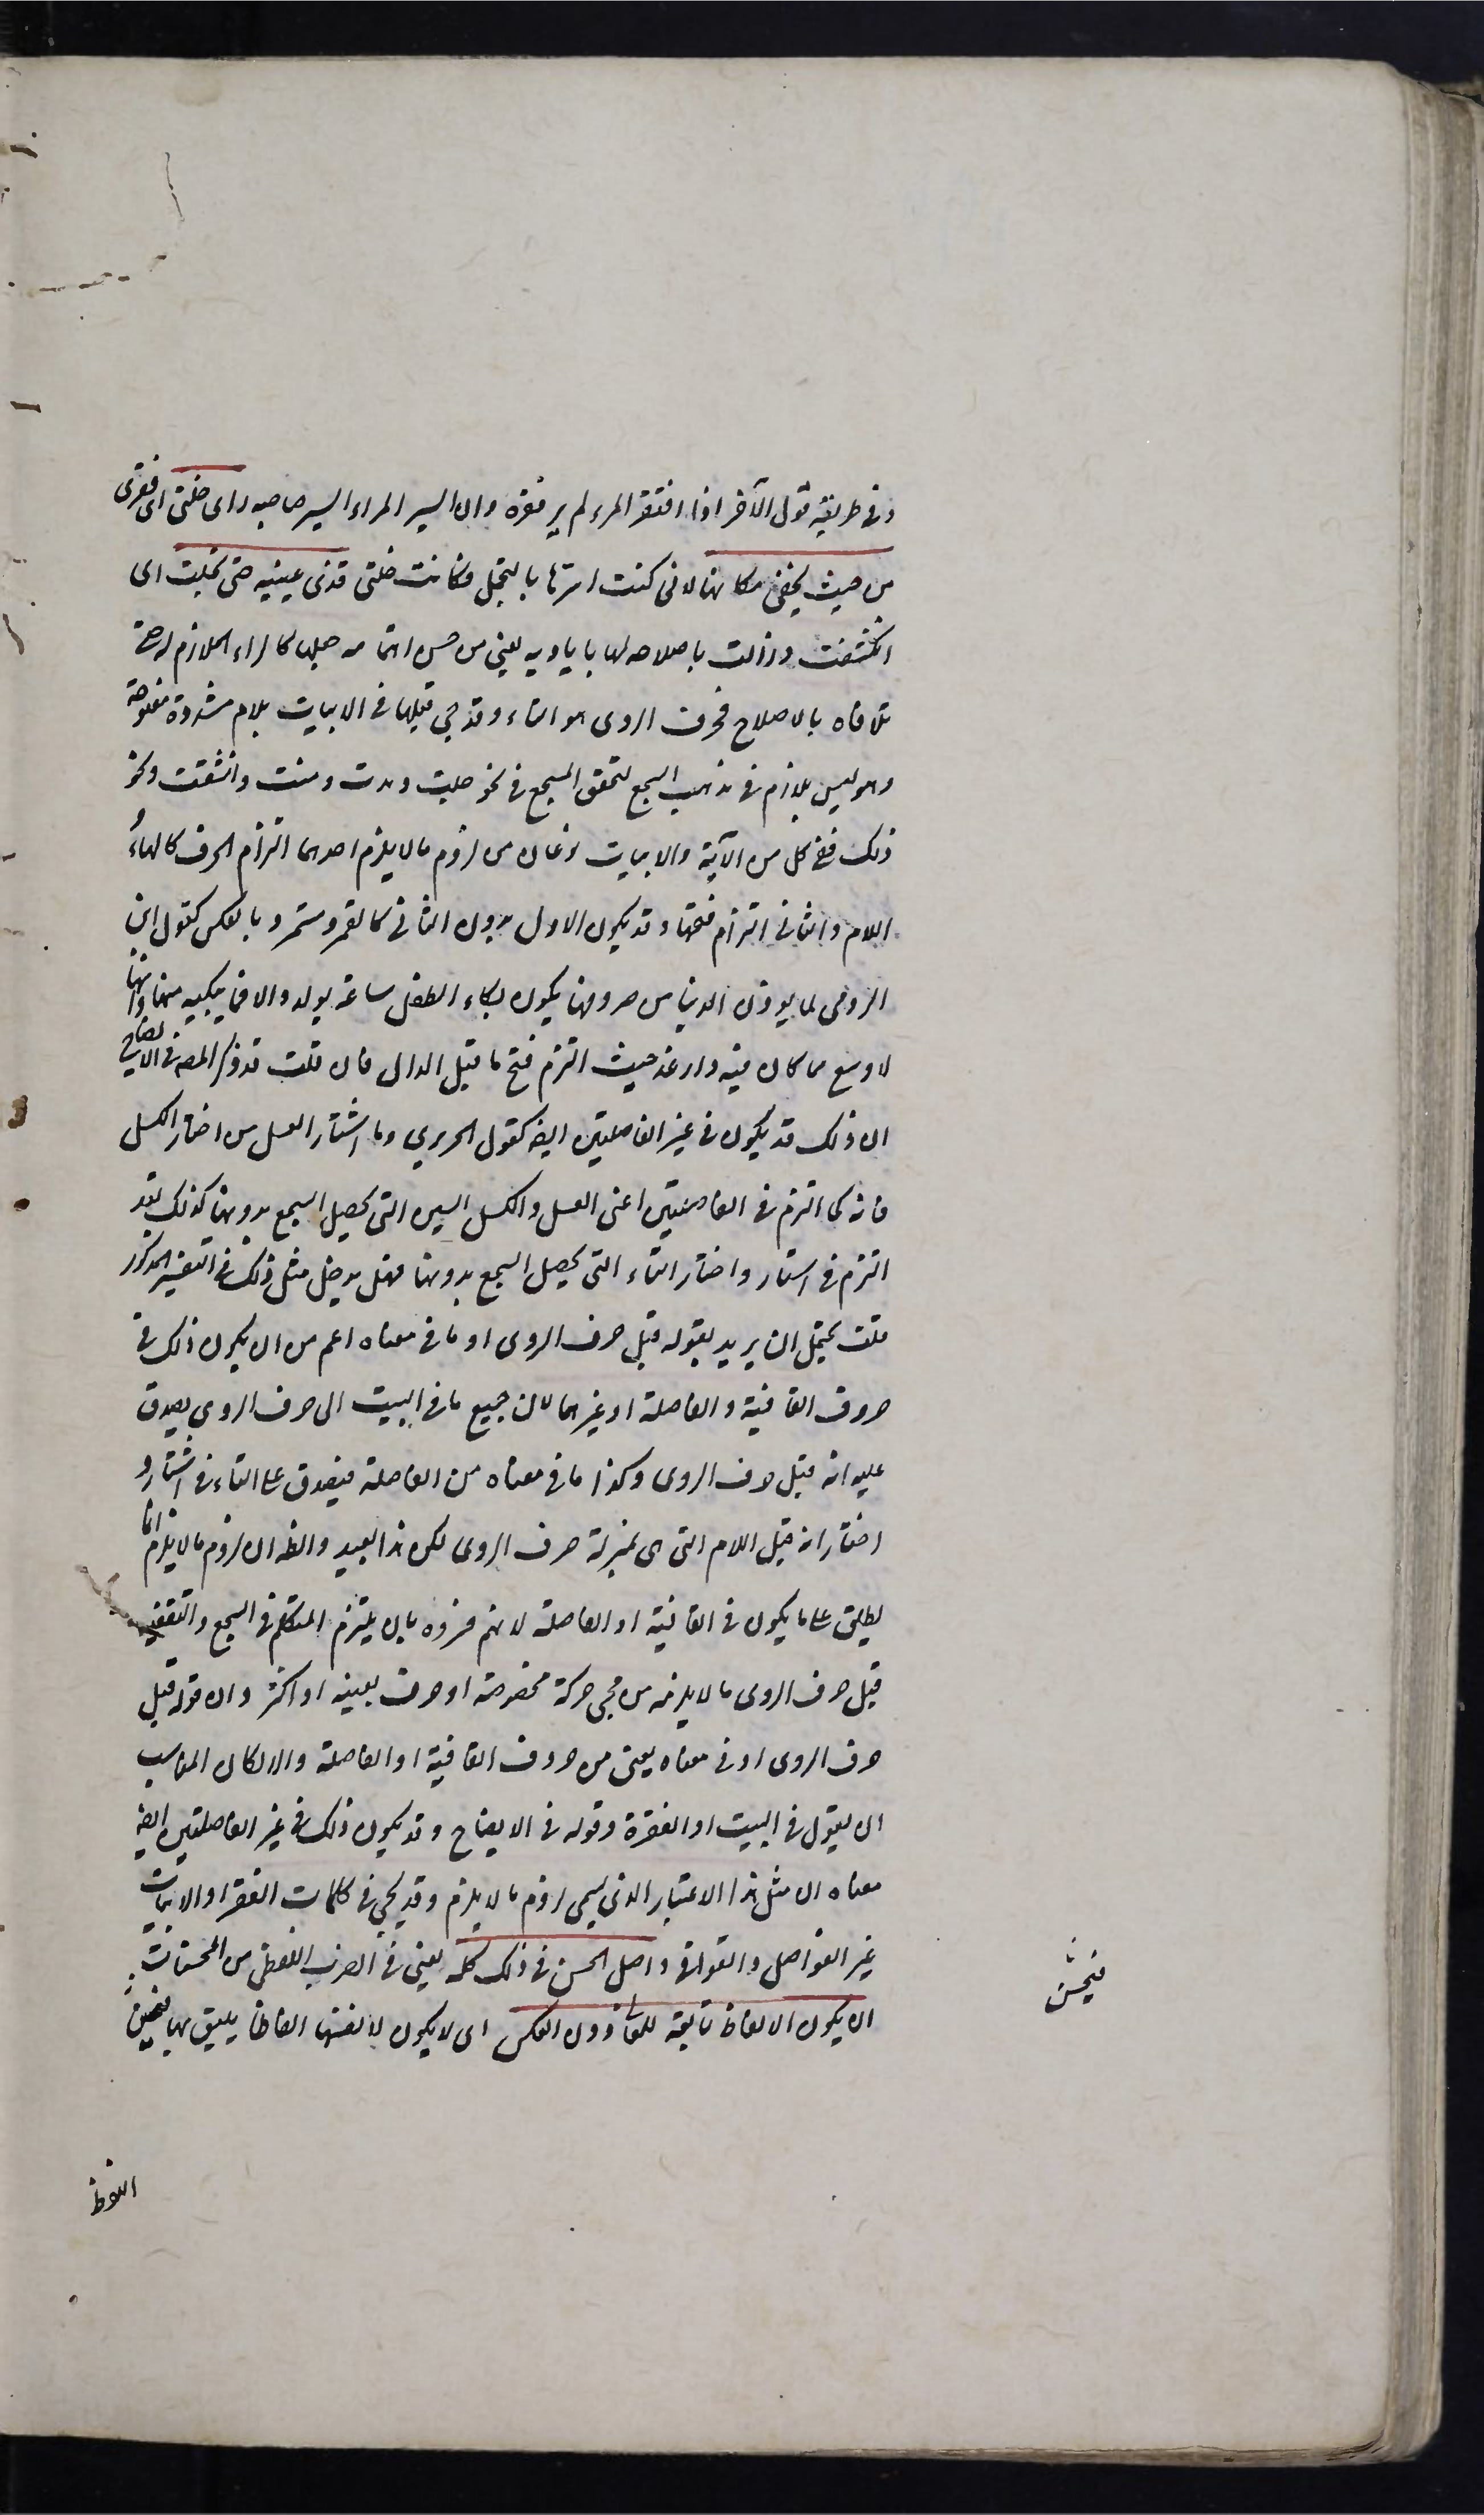 وفى طريقته قول الآخر اذا افتقر المرء لم ير فقره وان ايسر المراء ايسر صاحبه راى خلتى اى فقرى
من حيث يخفى مكانها لانى كنت استرها بالتجمل فكانت خلتى قذى عينيه حتى تجلت اى
انكشفت وزالت باصلاحه لها باياديه يعنى من حسن اهتمامه جعلها كالداء الملازم له حتى
تلافاه بالاصلاح فحرف الروى هو التاء وقد جئ قبلها فى الابيات بلام مشددة مفتوحة
وهو ليس بلازم فى مذهب السجع لتحقق السجع فى نحو جلت ومدت ومنت وانشقت ونحو
ذلك ففى كل من الآية والابيات نوعان من لزوم ما لا يلزم احدهما التزام الحرف كالهاء و
اللام والثانى التزام فتحها وقد يكون الاول بدون الثانى كالقمر ومستمر وبالعكس كقول ابن
الرومى لما يوذن الدنيا من صروفها يكون بكاء الطفل ساعة يولد والا فما يبكيه منها وانها
لاوسع مما كان فيه وارغد حيث التزم فتح ما قبل الدال فان قلت قد ذكر المصـ فى الايضاح
ان ذلك قد يكون فى غير الفاصلتين ايضـ كقول الحريرى وما اشتار العسل من اختار الكسل
فانه كما التزم فى الفاصلتين اعنى العسل والكسل السين التى يحصل السجع بدونها كذلك فقد
التزم فى اشتار واختار التاء التى يحصل السجع بدونها فهل يدخل مثل ذلك فى التفسير المذكور
قلت يحتمل ان يريد بقوله قبل حرف الروى او ما فى معناه اعم من ان يكون ذلك فى
حروف القافية والفاصلة او غيرهما لان جميع ما فى البيت الى حرف الروى يصدق
عليه انه قبل حرف الروى وكذا ما فى معناه من الفاصلة فيصدق على التاء فى اشتار و
اختار انه قبل اللام التى هى بمنزلة حرف الروى لكن هذا بعيد والظـ ان لزوم ما لا يلزم انما
يطلق على ما يكون فى القافية او الفاصلة لانهم فسروه بان يلتزم المتكلم فى السجع والتقفية
قبل حرف الروى ما لا يلزمه من مجئ حركة مخصوصة او حرف بعينه او اكثر وان قوله قبل
حرف الروى او فى معناه يعنى من حروف القافية او الفاصلة والا لكان المناسب
ان يقول فى البيت او الفقرة وقوله فى الايضاح وقد يكون ذلك فى غير الفاصلتين ايضـ
معناه ان مثل هذا الاعتبار الذى يسمى لزوم ما لا يلزم وقد يجئ فى كلمات الفقر او الابيات
غير الفواصل والقوافى واصل الحسن فى ذلك كله يعنى فى الضرب اللفظى من المحسنات
ان يكون الالفاظ تابعة للمعانى دون العكس اى لا يكون لانفسها الفاظا يليق بها فيحسن
فيحسن